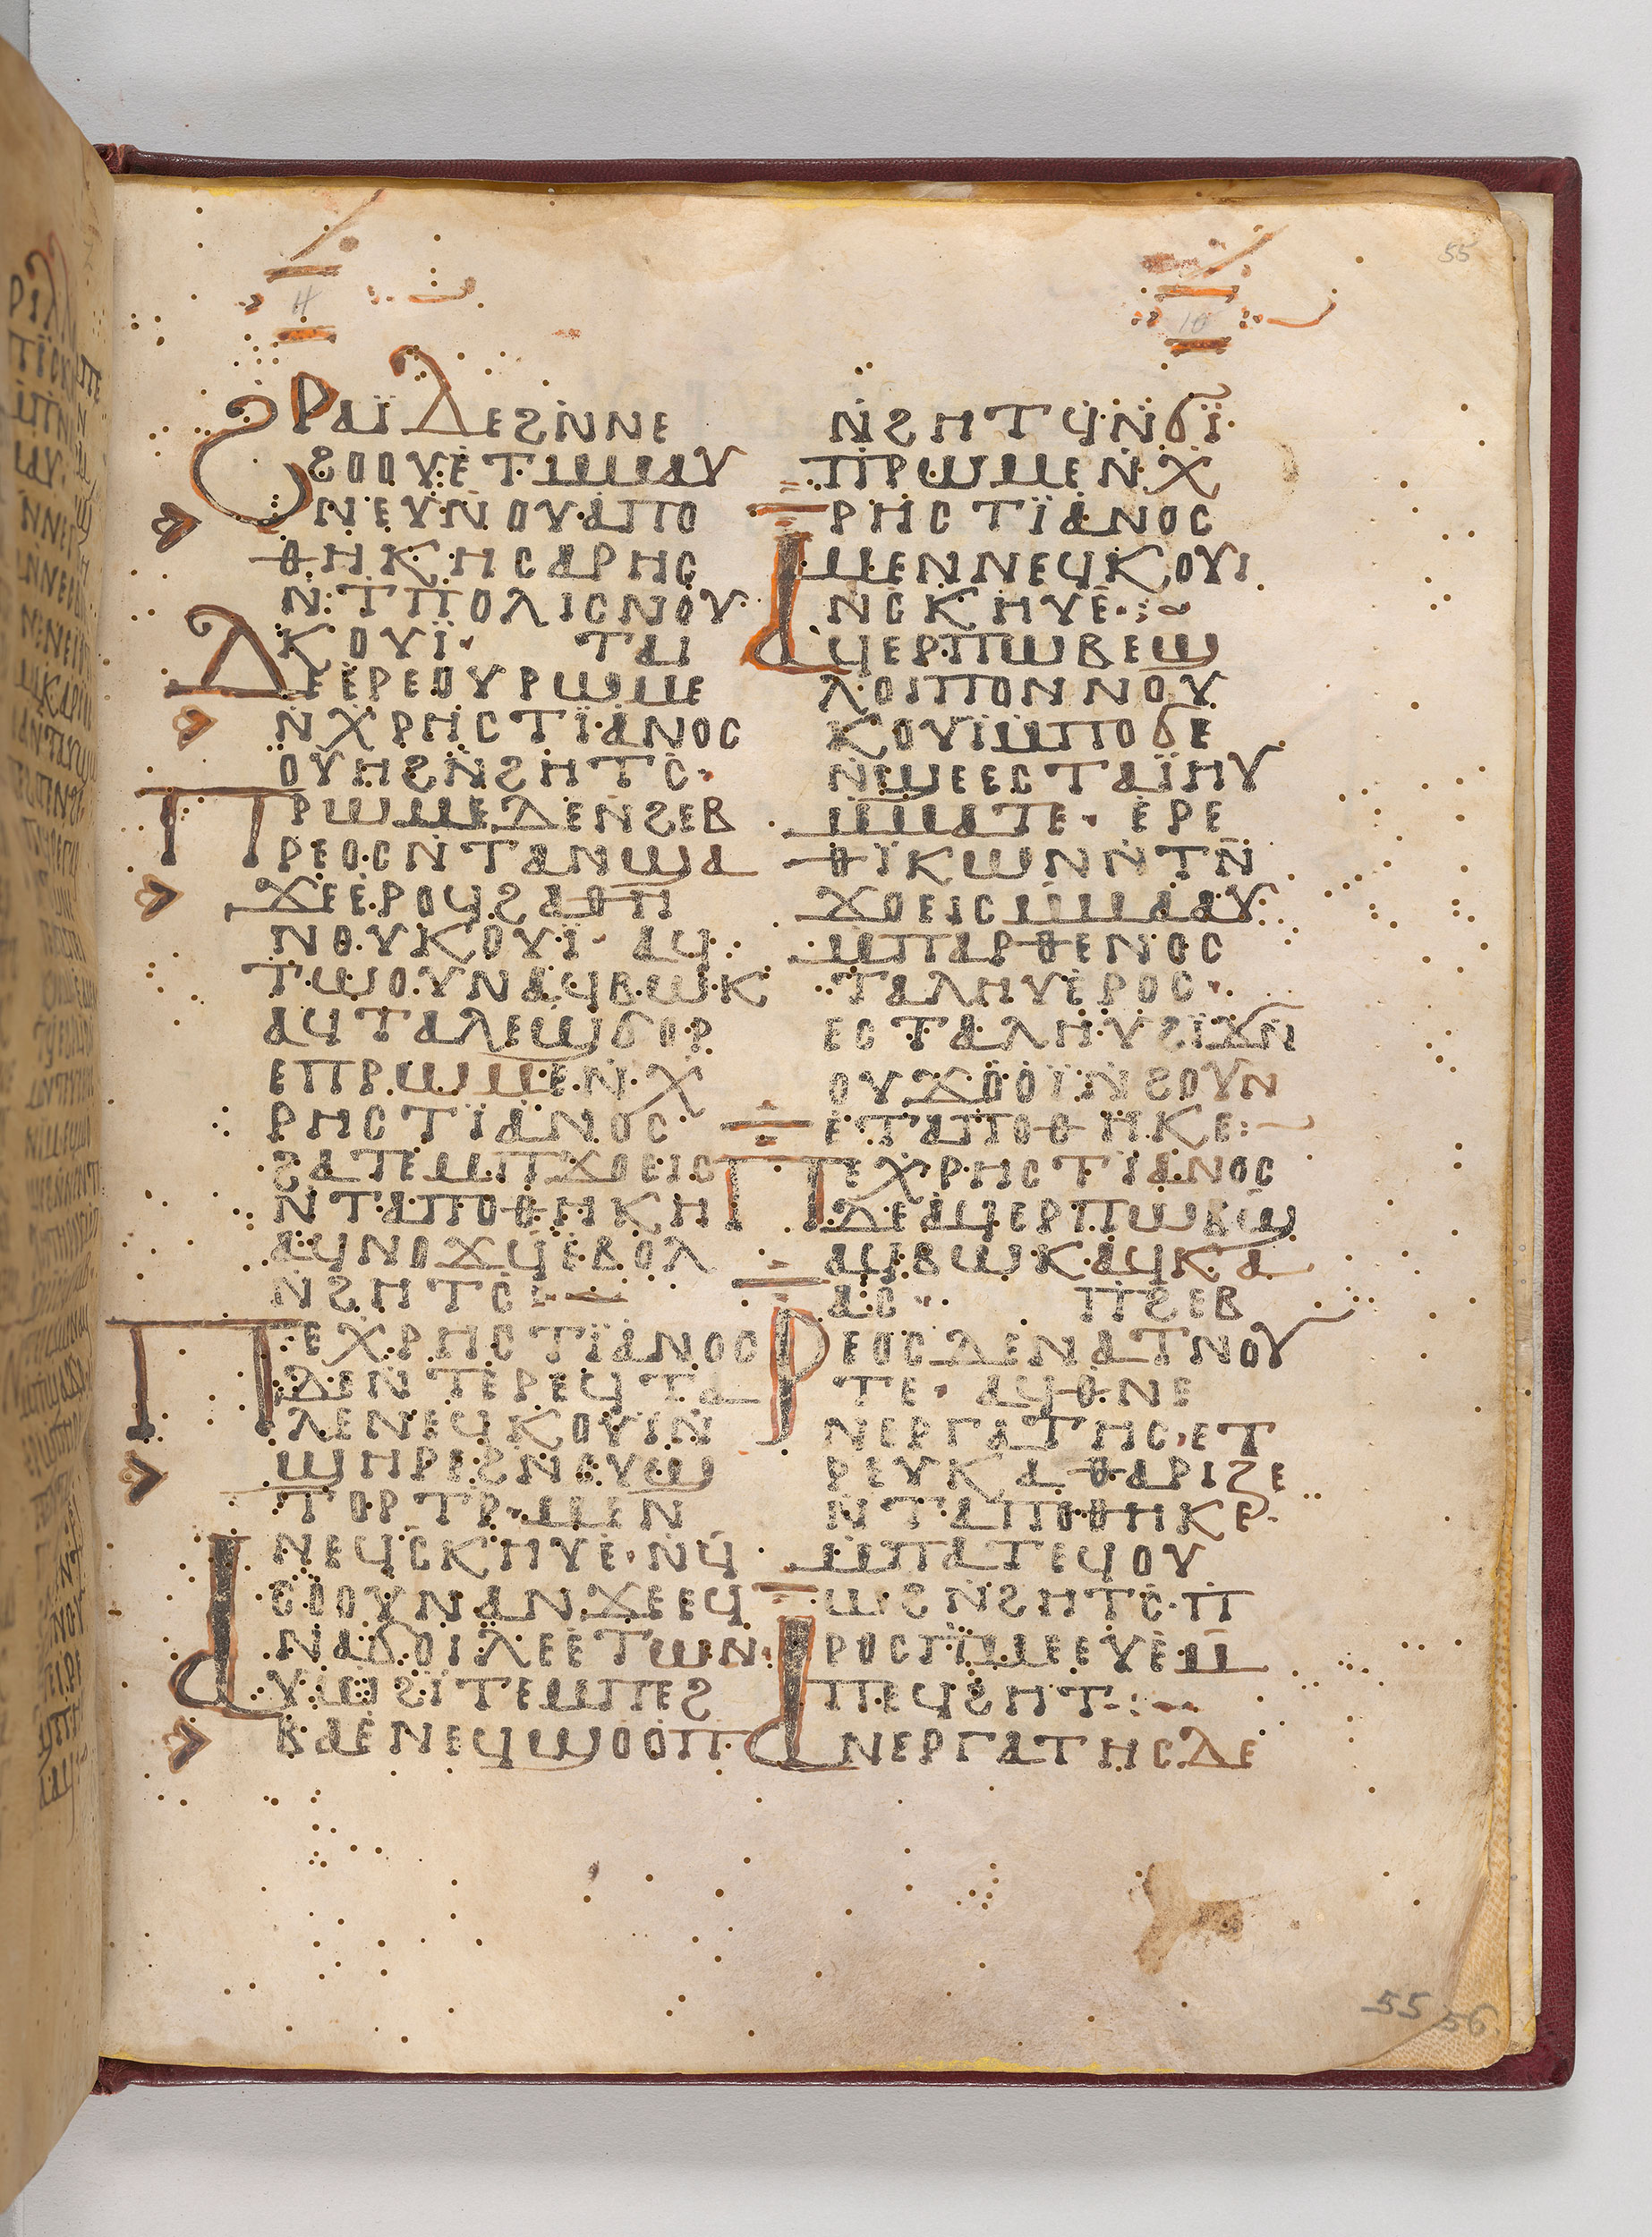 55
Ϩⲣⲁⲓ̈ⲇⲉϩⲛ̇ⲛⲉ
ϩⲟⲟⲩⲉⲧⲙⲙⲁⲩ
ⲛⲉⲩⲛ̇ⲟⲩⲁⲡⲟ
ⲑⲏⲕⲏⲥⲁⲣⲏⲥ
ⲛ̇ⲧⲡⲟⲗⲓⲥⲛⲟⲩ
ⲕⲟⲩⲓ̈· ⲧⲁⲓ
Ⲇⲉⲉ̇ⲣⲉⲟⲩⲣⲱⲙⲉ
ⲛ̇ⲭⲣⲏⲥⲧⲓ̈ⲁⲛⲟⲥ
ⲟⲩⲏϩⲛ̇ϩⲏⲧⲥ̇·
Ⲡⲣⲱⲙⲉⲇⲉⲛϩⲉⲃ
ⲣⲉⲟⲥⲛ̇ⲧⲁⲛϣⲁ
ϫⲉⲉ̇ⲣⲟϥϩⲁⲑⲏ
ⲛⲟⲩⲕⲟⲩⲓ̈· ⲁϥ
ⲧⲱⲟⲩⲛⲁϥⲃⲱⲕ
ⲁϥⲧⲁⲗⲉϣϭⲟⲣ
ⲉⲡⲣⲱⲙⲉⲛ̇ⲭ
ⲣⲏⲥⲧⲓ̈ⲁⲛⲟⲥ
ϩⲁⲧⲉⲙⲡϫⲟⲉⲓⲥ
ⲛ̇ⲧⲁⲡⲟⲑⲏⲕⲏ
ⲁϥⲛⲟϫϥⲉ̇ⲃⲟⲗ
ⲛ̇ϩⲏⲧⲥ̇:—
Ⲡⲉⲭⲣⲏⲥⲧⲓ̈ⲁⲛⲟⲥ
ⲇⲉⲛ̇ⲧⲉⲣⲉϥⲧⲁ
ⲗⲉⲛⲉϥⲕⲟⲩⲓⲛ̇
ϣⲏⲣⲉϩⲛ̇ⲟⲩϣ
ⲧⲟⲣⲧⲣ̇·ⲙⲛ
ⲛⲉϥⲥ̇ⲕⲏⲩⲉ̇·ⲛϥ̇
ⲥⲟⲟⲩⲛⲁⲛϫⲉⲉϥ
ⲛⲁϭⲟⲓⲗⲉⲉ̇ⲧⲱⲛ·
Ⲁⲩⲱϩⲓ̈ⲧⲉⲙⲡⲉϩ
ⲃⲁⲉ̇ⲛⲉϥϣⲟⲟⲡ·
ⲛ̇ϩⲏⲧϥ̇ⲛ̇ϭⲓ̈·
ⲡⲣⲱⲙⲉⲛ̇ⲭ
ⲣⲏⲥⲧⲓ̈ⲁⲛⲟⲥ
ⲙⲉⲛⲛⲉϥⲕⲟⲩⲓ
ⲛⲥⲕⲏⲩⲉ̇·:~
Ⲁϥⲉⲣⲡⲱⲃⲉϣ
ⲗⲟⲓⲡⲟⲛⲛⲟⲩ
ⲕⲟⲩⲓ̈ⲙ̇ⲡⲟϭⲉ
ⲛ̇ϣⲉⲉⲥⲧⲁⲓ̈ⲏⲩ
ⲙ̇ⲙⲁⲧⲉ· ⲉ̇ⲣⲉ
ⲑⲓ̈ⲕⲱⲛⲛ̇ⲧⲛ̇
ϫⲟⲉⲓⲥⲙ̇ⲙⲁⲁⲩ
ⲙ̇ⲡⲁⲣⲑⲉⲛⲟⲥ
ⲧⲁⲗⲏⲩⲉ̇ⲣⲟⲥ·
ⲉⲥⲧⲁⲗⲏⲩϩⲓ̈ϫⲛ̇
ⲟⲩϫⲟ̇ⲟⲓ̈ⲛ̇ϩⲟⲩⲛ
ⲉ̇ⲧⲁⲡⲟⲑⲏⲕⲉ:~
Ⲡⲉⲭⲣⲏⲥⲧⲓ̈ⲁⲛⲟⲥ
ⲇⲉⲁϥⲉⲣⲡⲱⲃϣ̇
ⲁϥⲃⲱⲕⲁϥⲕⲁ
ⲁⲥ·· ⲡϩⲉⲃ
Ⲣⲉⲟⲥⲇⲉⲛⲁⲧⲛⲟⲩ
ⲧⲉ· ⲁϥⲑ̇ⲛⲉ
ⲛⲉⲣⲅⲁⲧⲏⲥ·ⲉⲧ
ⲣⲉⲩⲕⲁⲑⲁⲣⲓⲍⲉ
ⲛ̇ⲧⲁⲡⲟⲑⲏⲕⲉ·
ⲙ̇ⲡⲁⲧⲉϥⲟⲩ
ⲱϩⲛ̇ϩⲏⲧⲥ̇·ⲡ
ⲣⲟⲥⲡⲙⲉⲉⲩⲉ̇ⲙ̇
ⲡⲉϥϩⲏⲧ·:~
Ⲁⲛⲉⲣⲅⲁⲧⲏⲥⲇⲉ
55 56